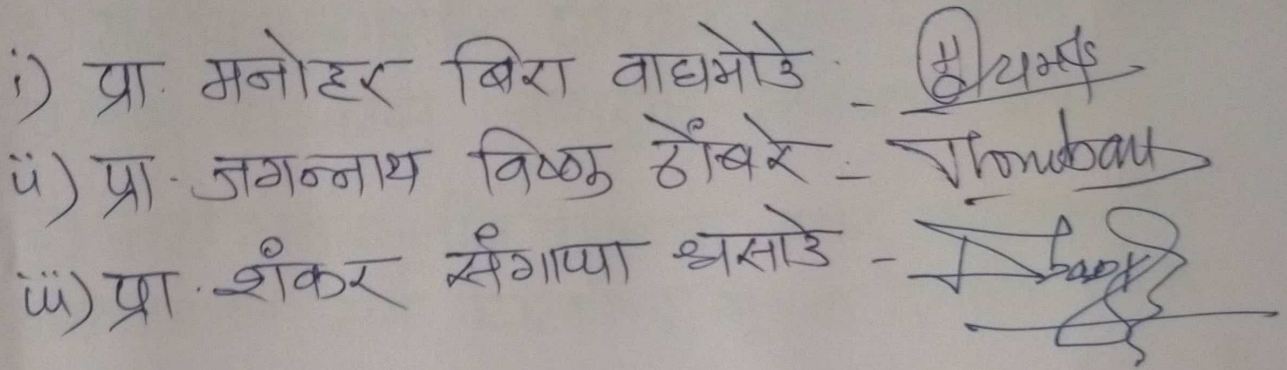 i) प्रा. मनोहर बिरा वाघमोडे -
ii) प्रा. जगन्नाथ विष्णू ठोंबरे - Thombare
iii) प्रा. शंकर संगाप्पा धसाडे -